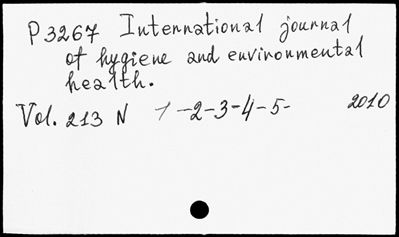 P3267 International journal
of hygiene and environmental
health.
Vol. 213 N 1-2-3-4-5- 2010